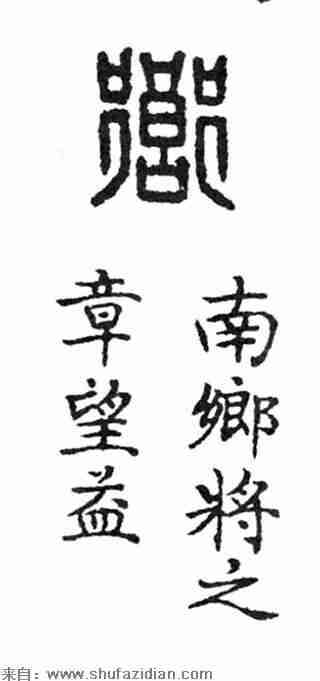 鄉
南鄉將之
章望益
来自：www.shufazidian.com